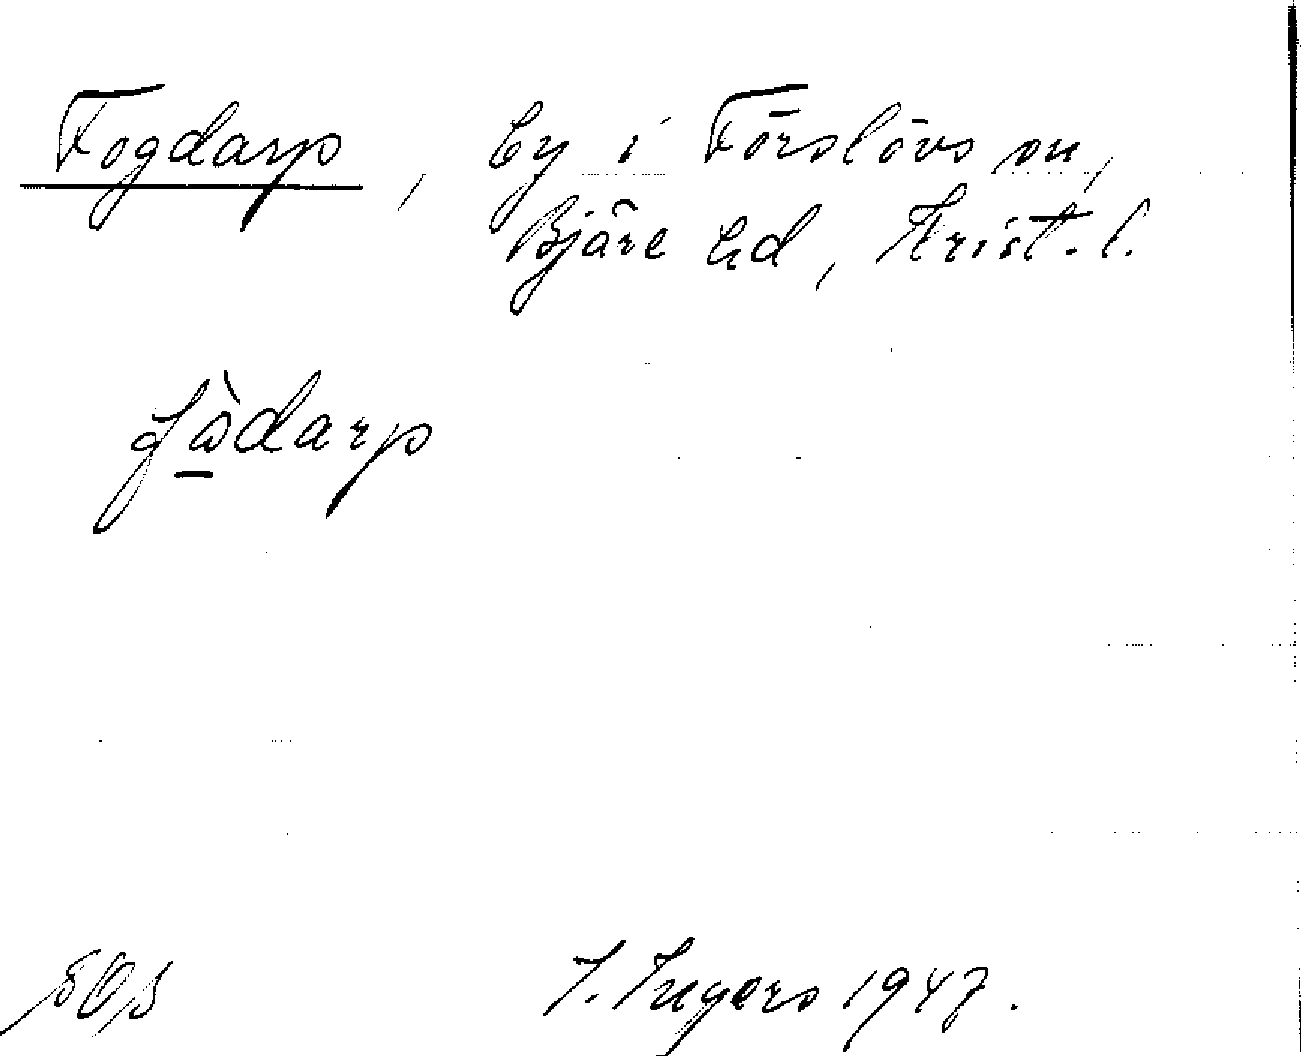 Fogdarp, by i Förslövs sn,
Bjäre hd, Krist. l.
fòdarp
I. Ingers 1947.